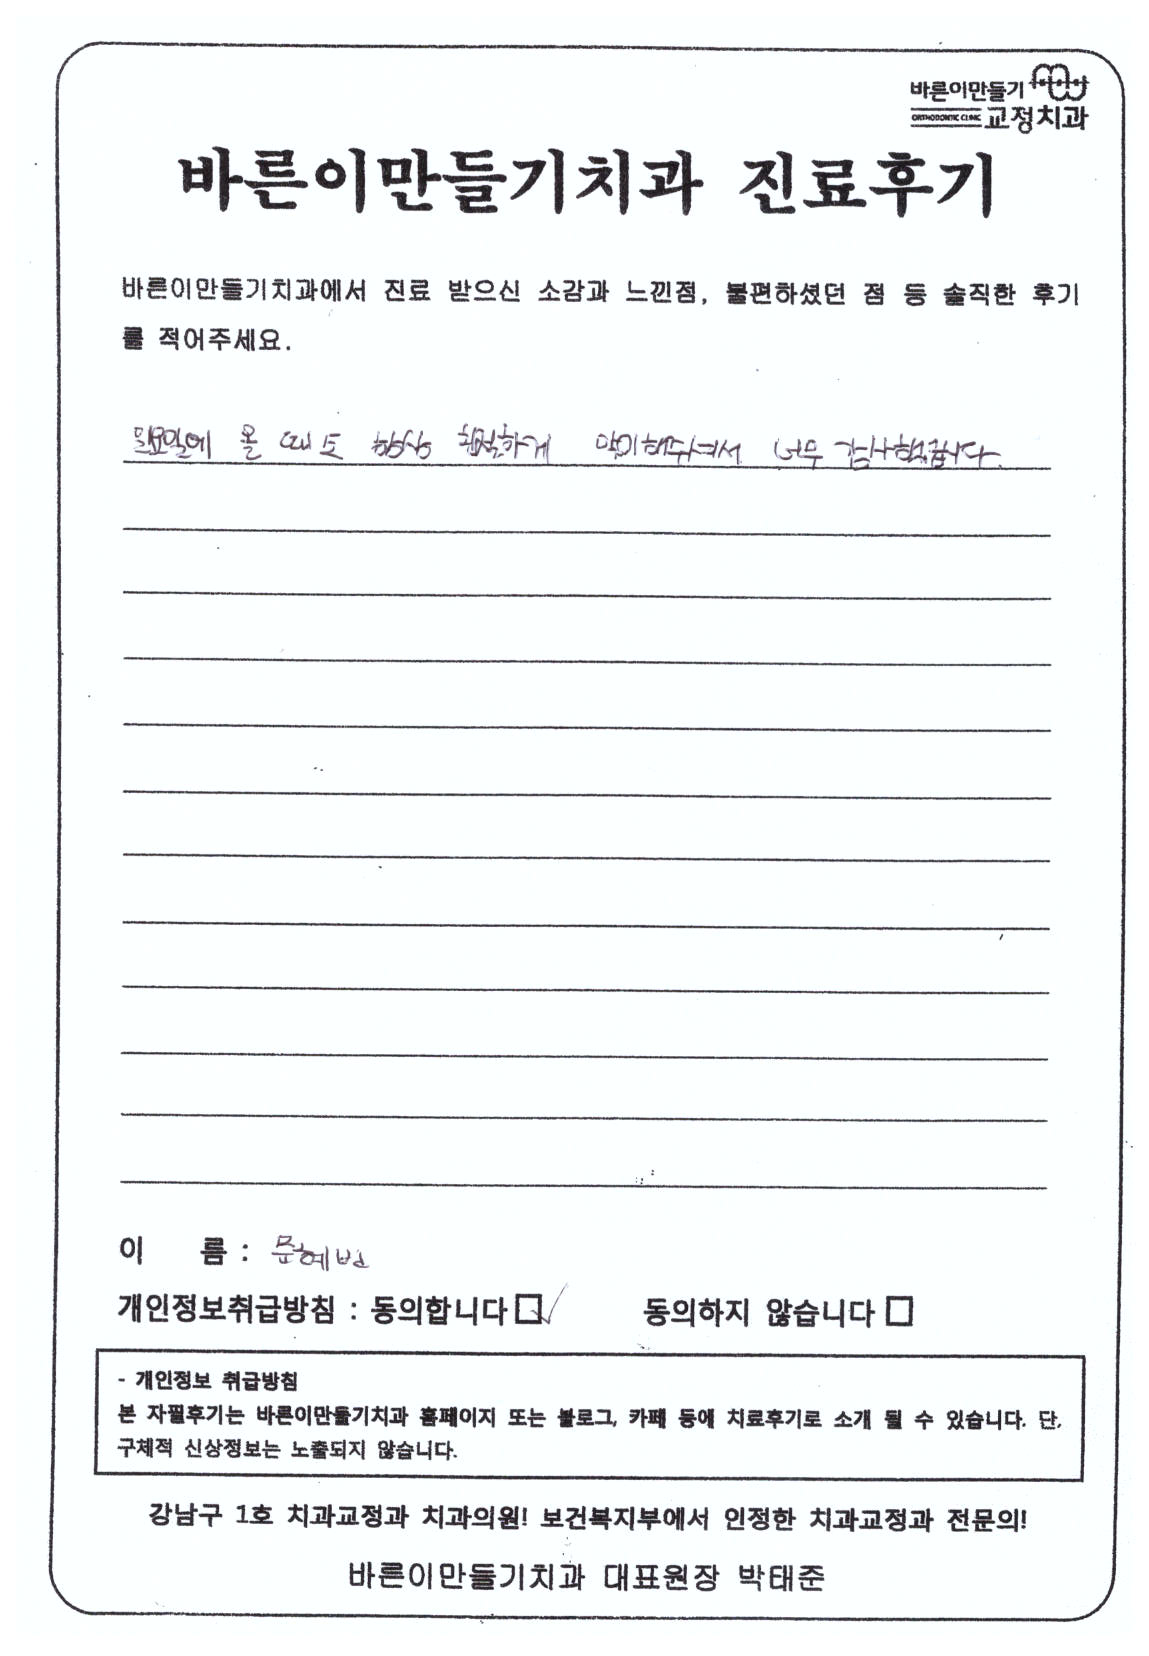 바른이만들기
ORTHODONTIC CLINIC 교정치과
바른이만들기치과 진료후기
바른이만들기치과에서 진료 받으신 소감과 느낀점, 불편하셨던 점 등 솔직한 후기
를 적어주세요.
일요일에 올 때도 항상 친절하게 맞이해주셔서 너무 감사했습니다.
이 름 : 문혜빈
개인정보취급방침 : 동의합니다 동의하지 않습니다
- 개인정보 취급방침
본 자필후기는 바른이만들기치과 홈페이지 또는 블로그, 카페 등에 치료후기로 소개 될 수 있습니다. 단,
구체적 신상정보는 노출되지 않습니다.
강남구 1호 치과교정과 치과의원! 보건복지부에서 인정한 치과교정과 전문의!
바른이만들기치과 대표원장 박태준